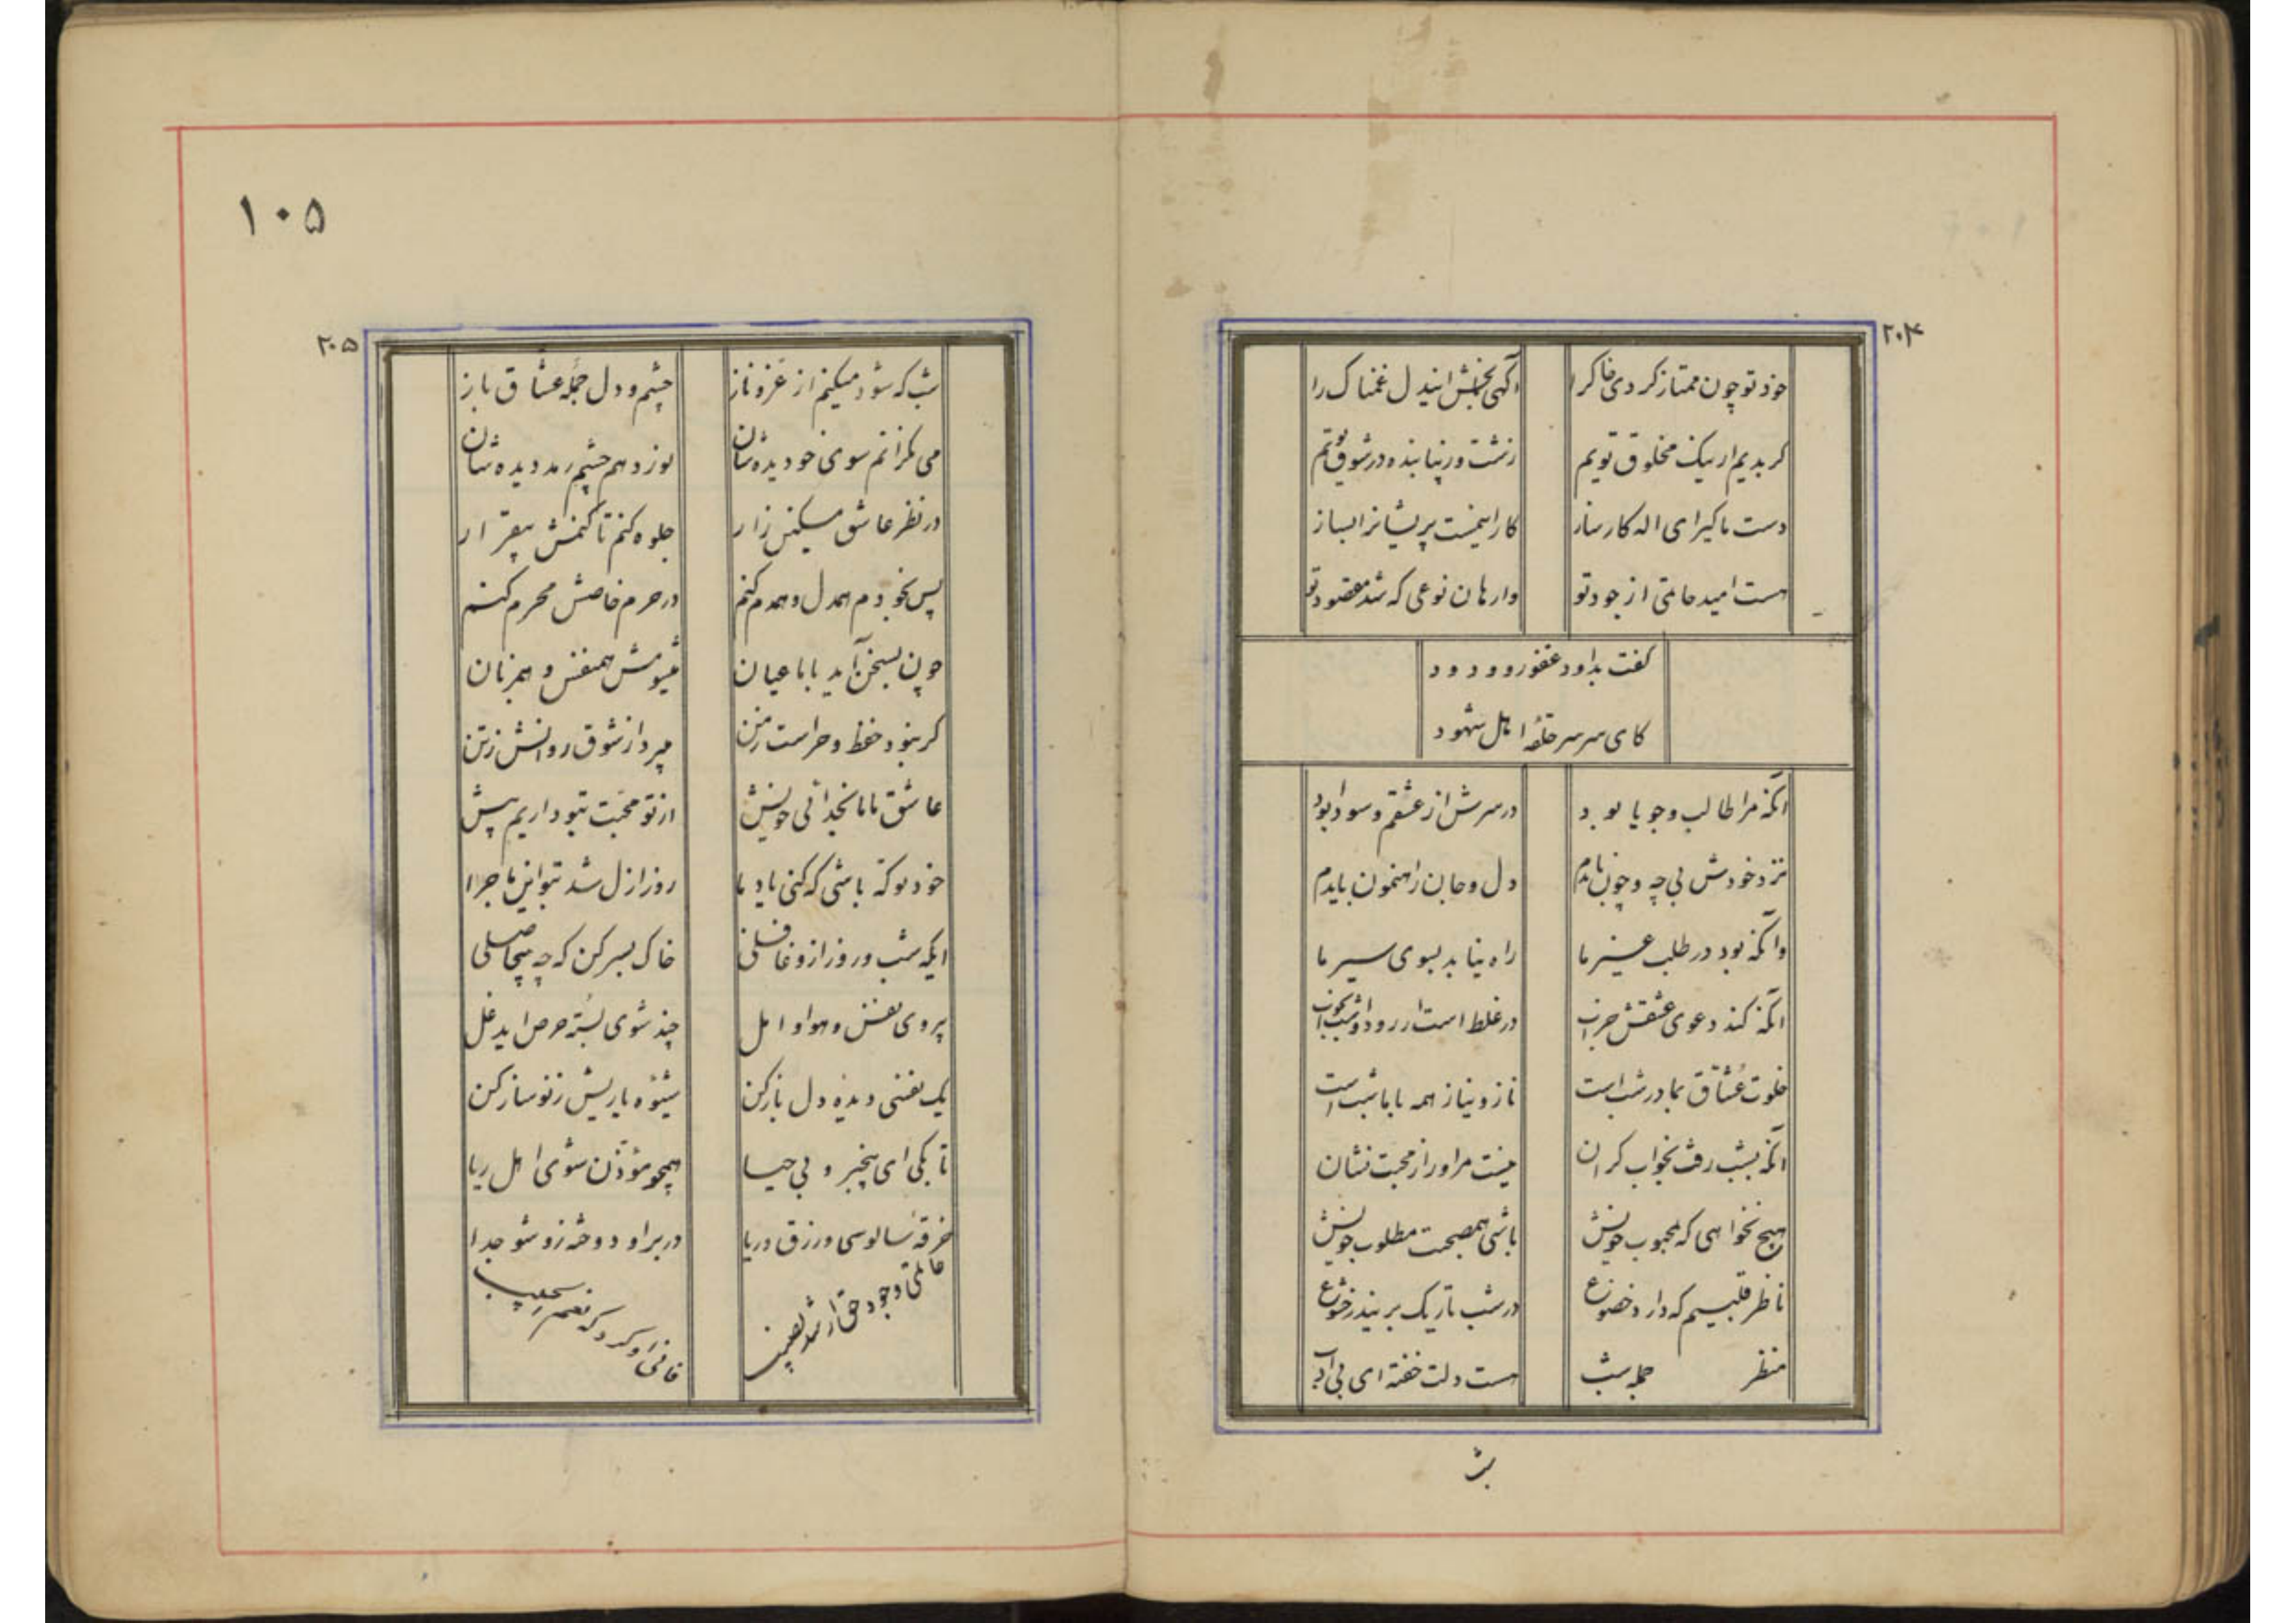 ۲۰۴
خود تو چون ممتاز کردی خاکرا
آگهی بخش ایندل غمناک را
کر بدیم ار نیک مخلوق تویم
زشت ور زیبا بنده در شوق توئیم
دست ما کیر ای اله کارساز
کار پریشانرا بساز
هست امید حاجتی از جود تو
وارهان نوعی که شد مقصود تو
کفت بداود غفور و ودود
کای سر سر حلقهٔ اهل شهود
آنکه مرا طالب و جویا بود
در سرش از عشقم و سودا بود
نزد خودش بی چه و چون یابدم
دل و جان راهنمون یابدم
وآنکه بود در طلب غیر ما
راه نیابد بسوی سیر ما
آنکه کند دعوی عشقش
در غلط است ار رود او شب بخواب
خلوت عشاق بما در شب است
ناز و نیاز همه با ما شب است
آنکه بشب رفت بخواب کران
نیست مر او را ز محبت نشان
هیچ نخواهی که بمحبوب خویش
باشی هم صحبت مطلوب خویش
ناظر قلبیم که دارد خضوع
در شب تاریک خشوع
منظر جمله شب
هست دلت خفته ای بی ادب
شب
۱۰۵
۲۰۵
شب که شود میکنم از عز و ناز
چشم و دل جمله عشاق باز
می نکرانم سوی خود دیده شان
نور دهم چشم رمد دیده شان
در نظر عاشق مسکین زار
جلوه کنم تا کنمش بیقرار
پس بخودم همدل و همدم کنم
در حرم خاصش محرم کنم
چون بسخن آید با ما عیان
میشومش همنفس و همزبان
کر نبود حفظ و حراست ز من
میپرد از شوق روانش ز تن
عاشق مایا بخدائی خویش
از تو محبت بتو داریم بیش
خود تو که باشی که کنی یاد ما
روز ازل شد بتو این ماجرا
ایکه شب و روز ازو غافلی
خاک بسر کن که چه بیحاصلی
پیروی نفس و هوا و امل
چند شوی بستهٔ حرص ای دغل
یک نفسی دیدهٔ دل باز کن
شیوه یاریش ز نو ساز کن
تا بکی ای بیخبر و بی حیا
همچو مؤذن شوی اهل ریا
خرقه سالوسی و رزق و ریا
در بر او دوخته زو شو جدا
حاجتی وجود حق ار شد نصیب
فانی او کرد که نعم الحبیب